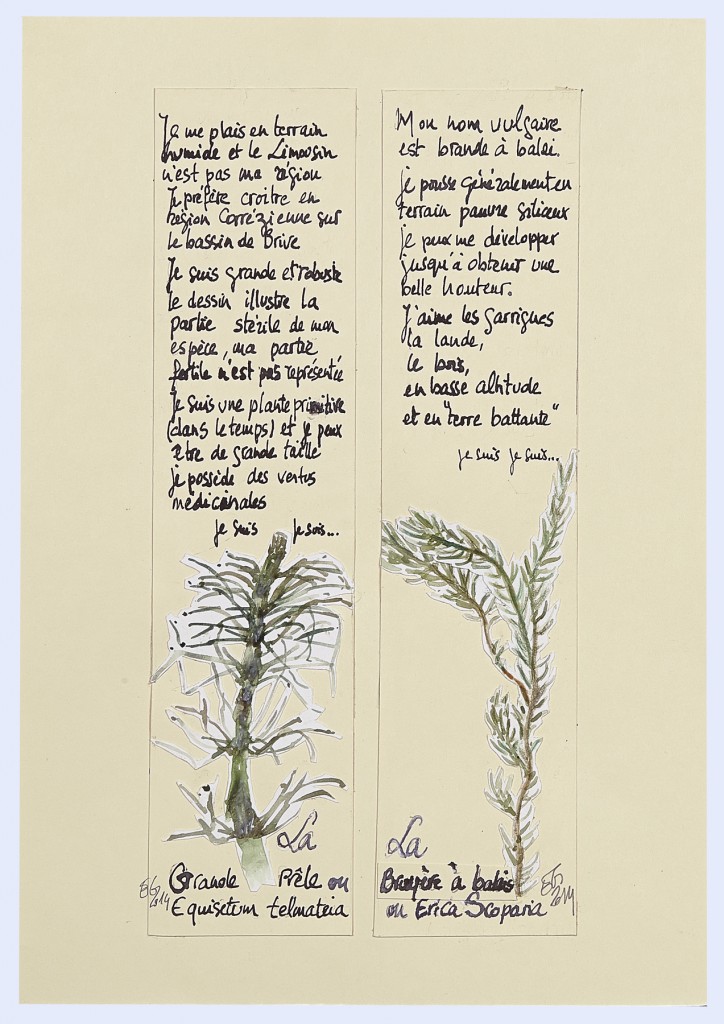 Je me plais en terrain
humide et le Limousin
n'est pas ma région
Je préfère croitre en
région Corrézienne sur
le bassin de Brive
Je suis grande et robuste
le dessin illustre la
partie stérile de mon
espèce, ma partie
fertile n'est pas représentée
Je suis une plante primitive
(dans le temps) et je peux
être de grande taille
je possède des vertus
médicinales
je suis je suis...
La
Grande Prêle ou
Equisetum telmateia
2014
Mon nom vulgaire
est brande à balai.
je pousse généralement en
terrain pauvre siliceux
je peux me développer
jusqu'à obtenir une
belle hauteur.
J'aime les garrigues
la lande,
le bois,
en basse altitude
et en "terre battante"
je suis je suis...
La
Bruyère à balais
ou Erica Scoparia
2014